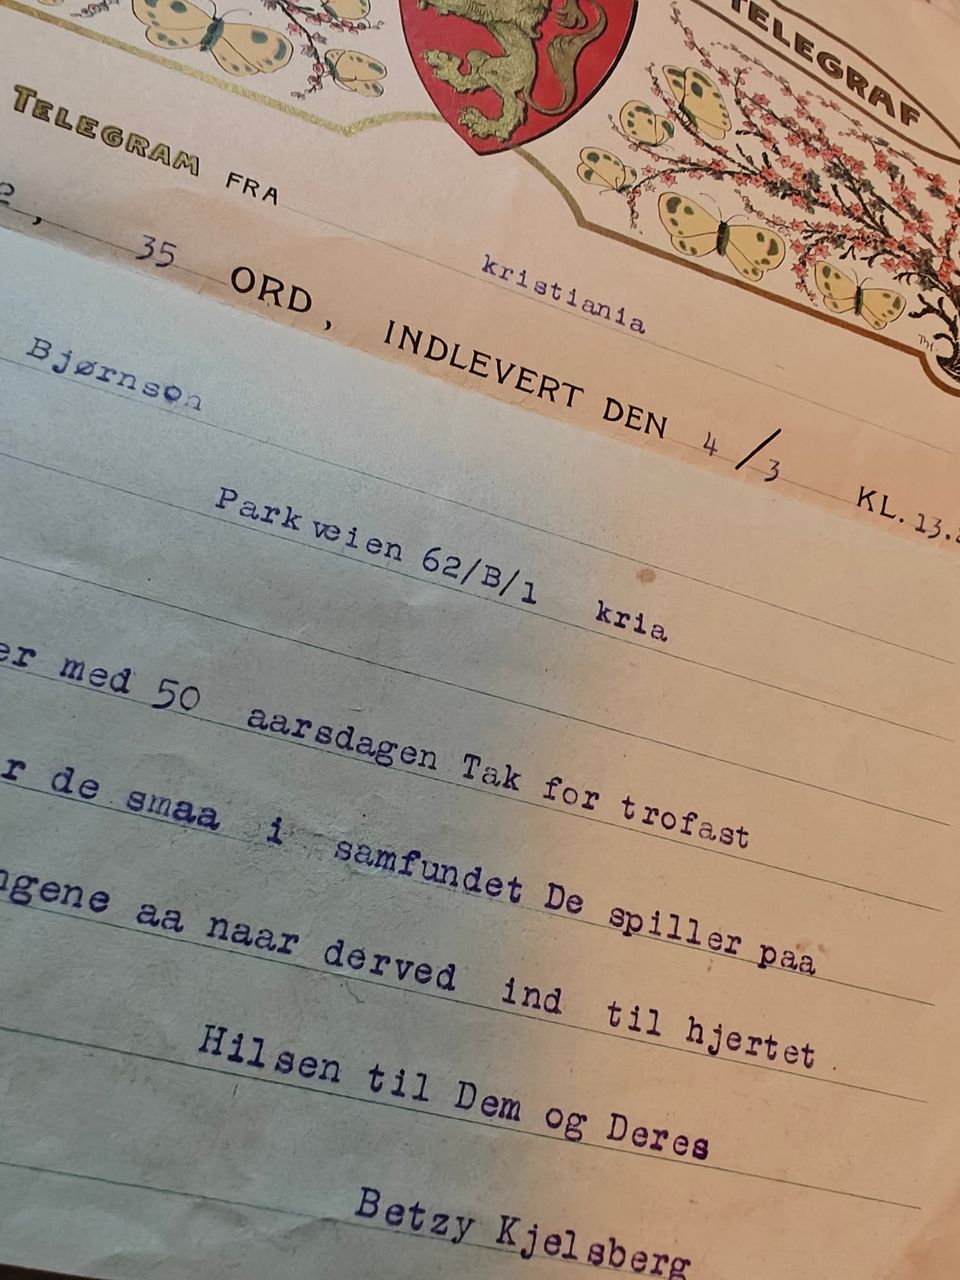 TELEGRAF
TELEGRAM FRA kristiania
35 ORD, INDLEVERT DEN 4/3 KL. 13.
Bjørnson
Parkveien 62/B/1 kria
med 50 aarsdagen Tak for trofast
de smaa i samfundet De spiller paa
aa naar derved ind til hjertet
Hilsen til Dem og Deres
Betzy Kjelsberg